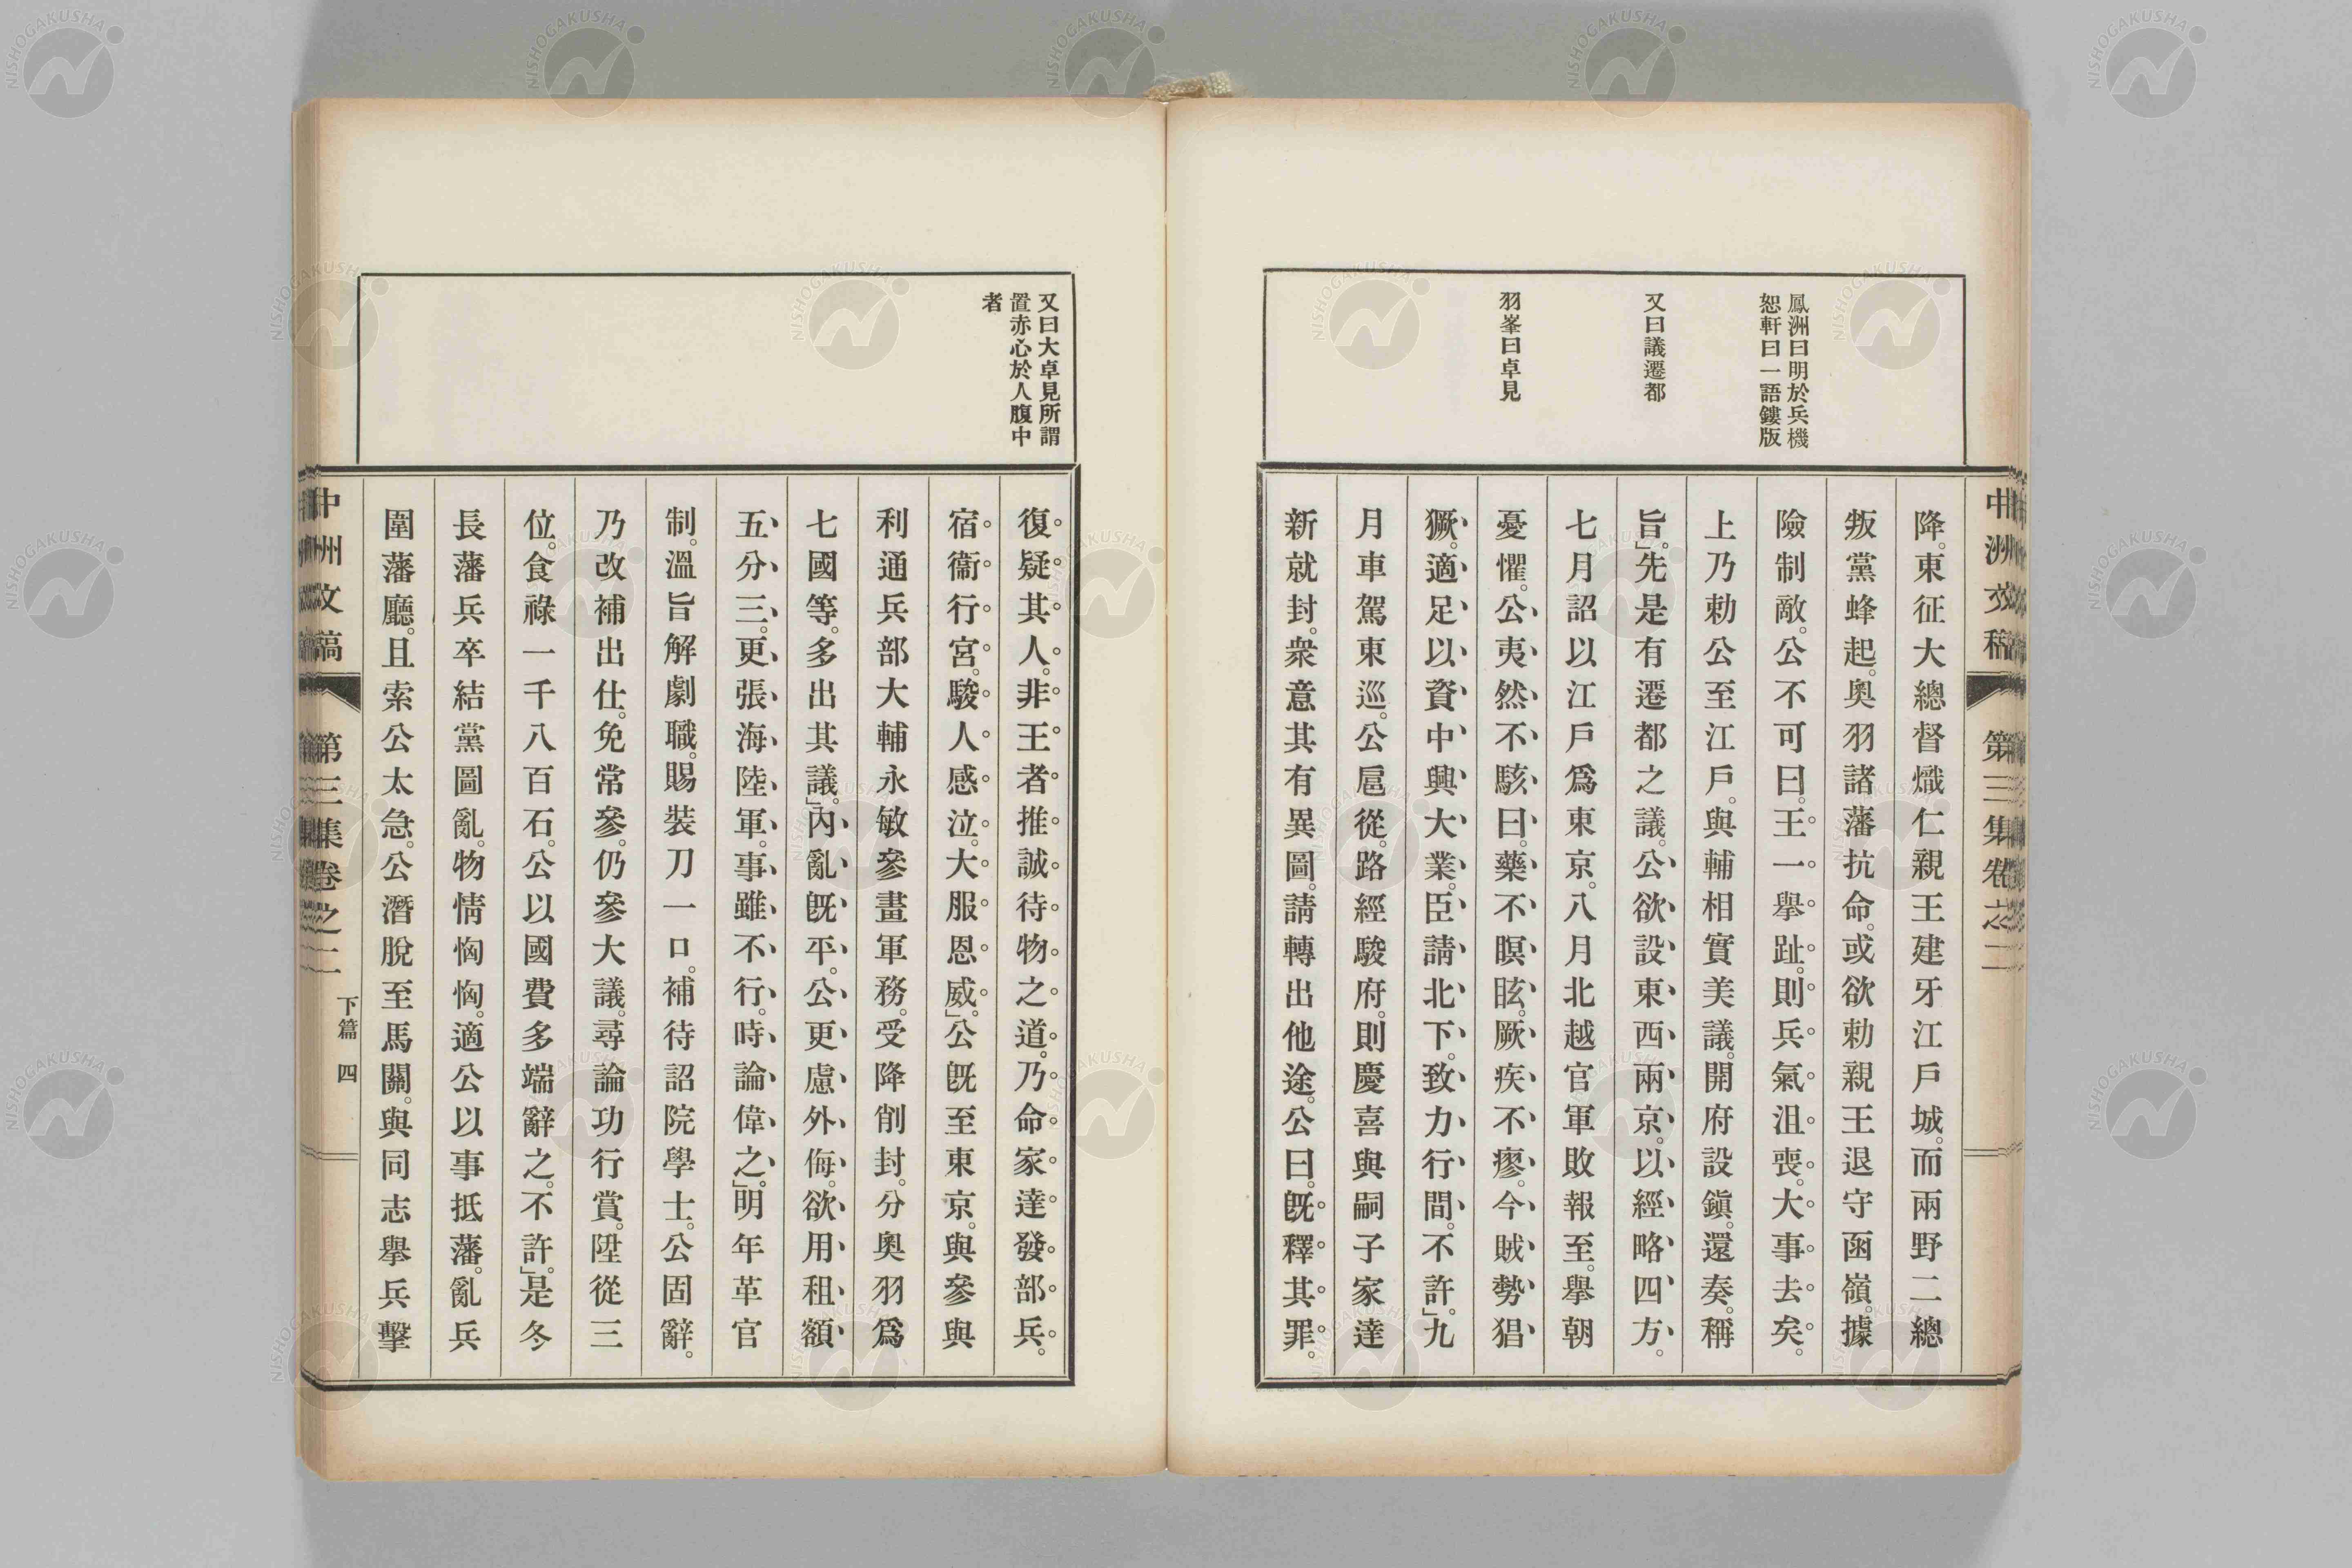 鳳洲曰明於兵機
恕軒曰一語鏤版
又曰議遷都
羽峯曰卓見
中洲文稿 第三集卷之二
降。東征大總督熾仁親王建牙江戶城。而兩野二總
叛黨蜂起。奧羽諸藩抗命。或欲勅親王退守函嶺。據
險制敵。公不可曰。王一擧趾。則兵氣沮喪。大事去矣。
上乃勅公至江戶。與輔相實美議。開府設鎭。還奏。稱
旨。」先是有遷都之議。公欲設東西兩京。以經略四方。
七月詔以江戶爲東京。八月北越官軍敗報至。擧朝
憂懼。公夷然不駭曰。藥不瞑眩。厥疾不瘳。今賊勢猖
獗。適足以資中興大業。臣請北下。致力行間。不許。」九
月車駕東巡。公扈從。路經駿府。則慶喜與嗣子家達
新就封。衆意其有異圖。請轉出他途。公曰。旣釋其罪。
又曰大卓見所謂
置赤心於人腹中
者
復疑其人。非王者推誠待物之道。乃命家達發部兵。
宿衞行宮。駿人感泣。大服恩威。」公旣至東京。與參與
利通兵部大輔永敏參畫軍務。受降削封。分奧羽爲
七國等。多出其議。」內亂旣平。公更慮外侮。欲用租額
五分三。更張海陸軍。事雖不行。時論偉之。」明年革官
制。溫旨解劇職。賜裝刀一口。補待詔院學士。公固辭。
乃改補出仕。免常參。仍參大議。尋論功行賞。陞從三
位。食祿一千八百石。公以國費多端辭之。不許。」是冬
長藩兵卒結黨圖亂。物情恟恟。適公以事抵藩。亂兵
圍藩廳。且索公太急。公潛脫至馬關。與同志擧兵擊
中洲文稿 第三集卷之二 下篇 四